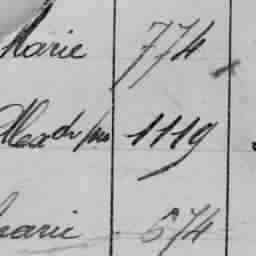 Marie 774
Alexdre 1119
Marie 674